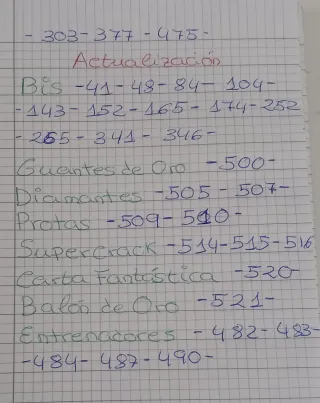 - 303-377-475-
Actualización
Bis -41-48-84-104-
-143-152-165-174-252
-265-341-346-
Guantes de Oro -500-
Diamantes -505-507-
Protas -509-510-
Supercrack -514-515-516
Carta Fantástica -520-
Balón de Oro -521-
Entrenadores -482-483-
-484-487-490-